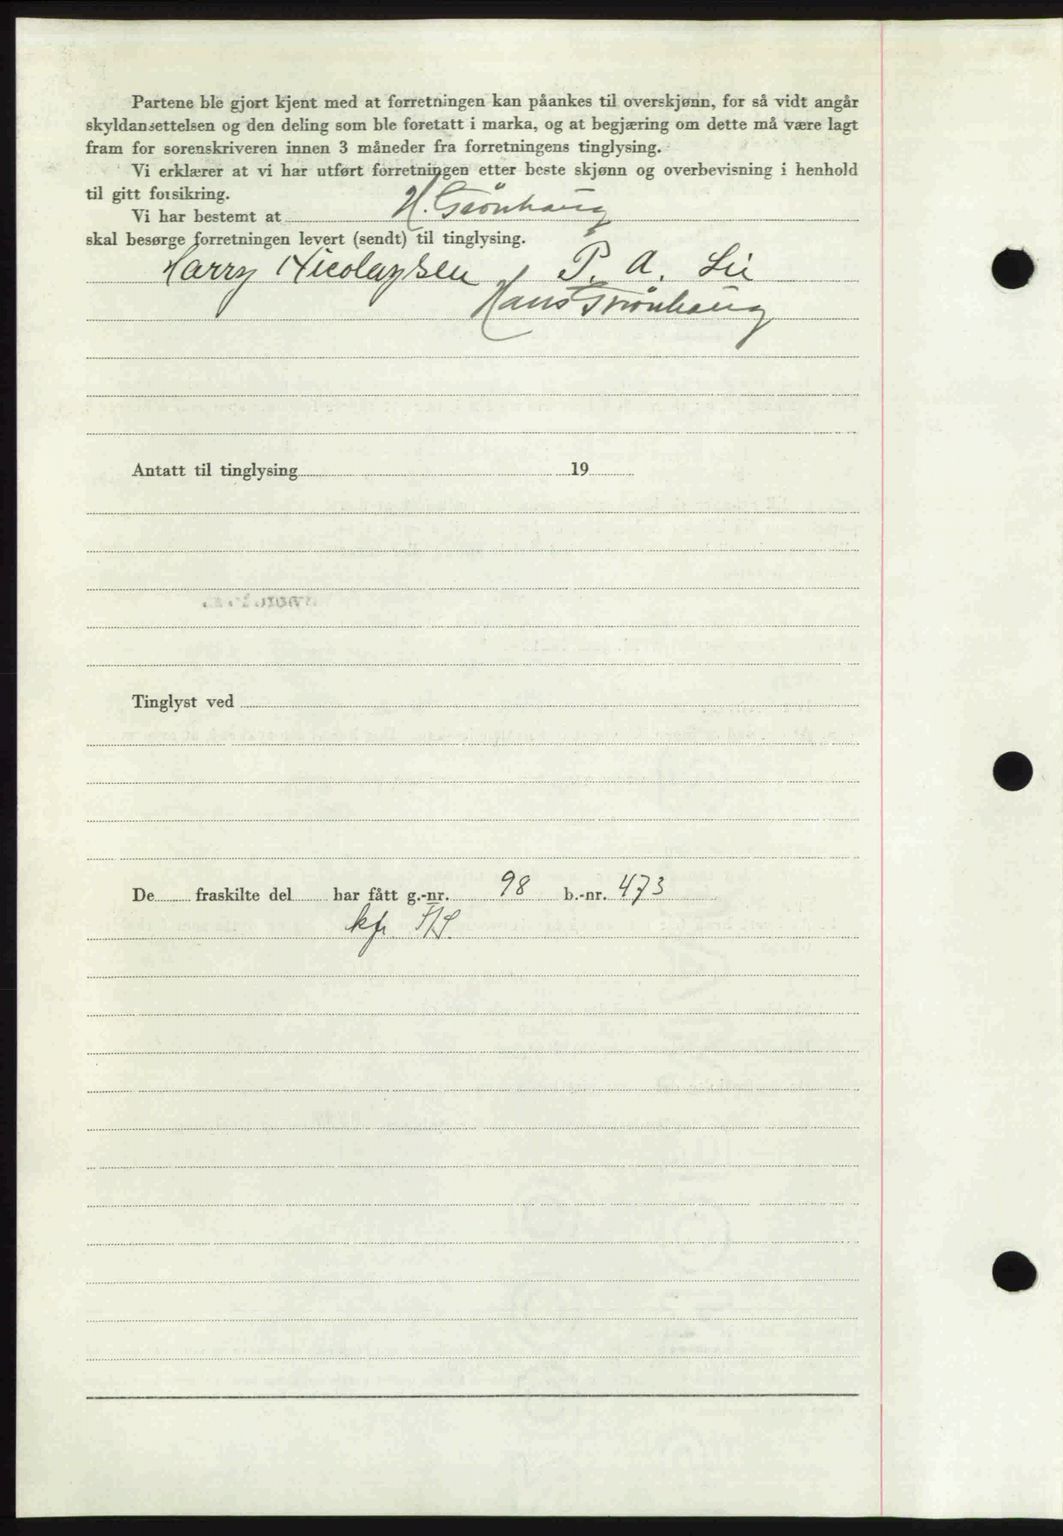 Partene ble gjort kjent med at forretningen kan påankes til overskjønn, for så vidt angår
skyldansettelsen og den deling som ble foretatt i marka, og at begjæring om dette må være lagt
fram for sorenskriveren innen 3 måneder fra forretningens tinglysing.
Vi erklærer at vi har utført forretningen etter beste skjønn og overbevisning i henhold
til gitt forsikring.
Vi har bestemt at H. Grönhaug
skal besørge forretningen levert (sendt) til tinglysing.
Harry Nicolaysen P. A. Lie
Hans Grönhaug
Antatt til tinglysing 19
Tinglyst ved
De fraskilte del har fått g.-nr. 98 b.-nr. 473
kfr.